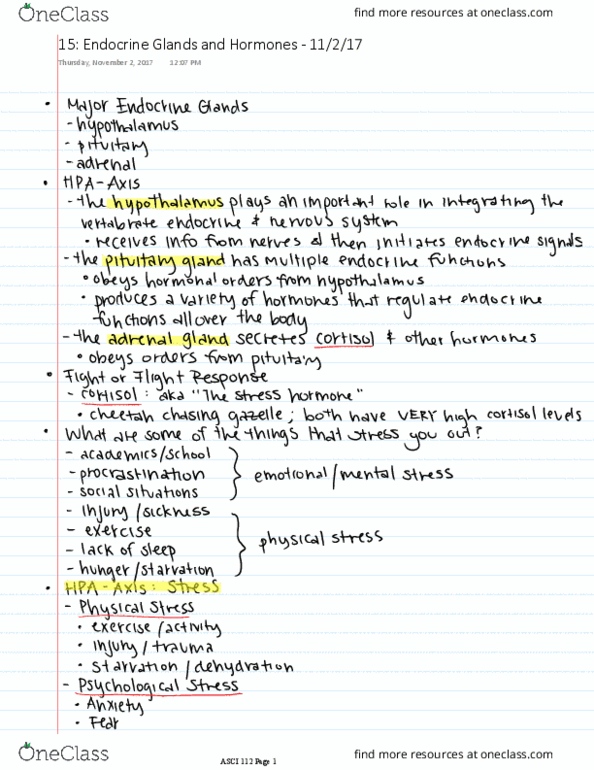 OneClass
find more resources at oneclass.com
15: Endocrine Glands and Hormones - 11/2/17
Thursday, November 2, 2017 12:07 PM
• Major Endocrine Glands
- hypothalamus
- pituitary
- adrenal
• HPA-Axis
- the hypothalamus plays an important role in integrating the
vertabrate endocrine & nervous system
• receives info from nerves & then initiates endocrine signals
- the pituitary gland has multiple endocrine functions
• obeys hormonal orders from hypothalamus
• produces a variety of hormones that regulate endocrine
functions all over the body
- the adrenal gland secretes cortisol & other hormones
• obeys orders from pituitary
• Fight or Flight Response
- cortisol: aka "The stress hormone"
• cheetah chasing gazelle; both have VERY high cortisol levels
• What are some of the things that stress you out?
- academics/school
- procrastination
- social situations
emotional/mental stress
- injury/sickness
- exercise
- lack of sleep
- hunger/starvation
physical stress
• HPA-Axis: Stress
- Physical Stress
• exercise/activity
• injury/trauma
• starvation/dehydration
- Psychological Stress
• Anxiety
• Fear
OneClass
ASCI 112 Page 1
find more resources at oneclass.com